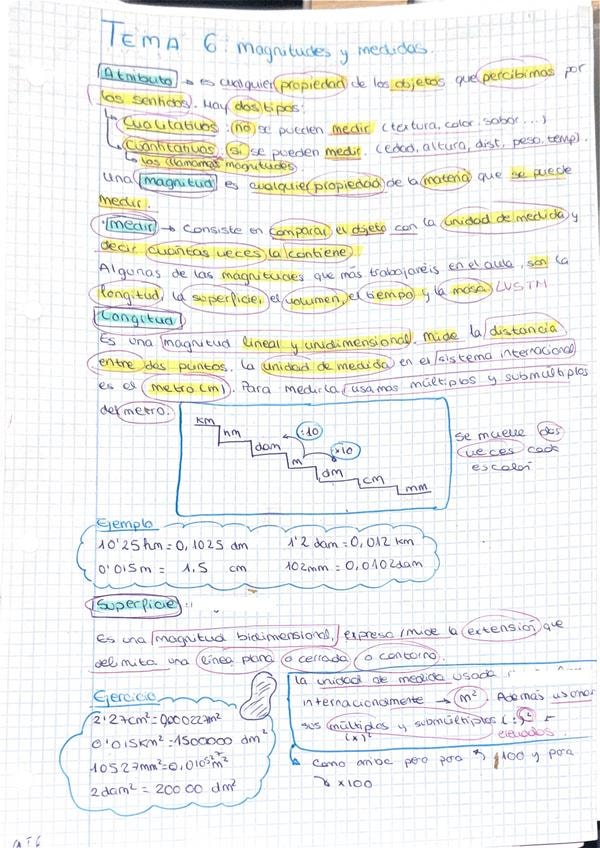 TEMA 6: magnitudes y medidas.
Atributo → es cualquier propiedad de los objetos que percibimos por
los sentidos. Hay dos tipos:
Cualitativos: no se pueden medir (textura, color, sabor...)
Cuantitativos: si se pueden medir. (edad, altura, dist, peso, temp).
los llamamos magnitudes.
Una magnitud es cualquier propiedad de la materia que se puede
medir.
medir → consiste en comparar el objeto con la unidad de medida y
decir cuantas veces la contiene.
Algunas de las magnitudes que más trabajareis en el aula, son la
longitud, la superficie, el volumen, el tiempo y la masa LVSTM
Longitud
Es una magnitud lineal y unidimensional. Mide la distancia
entre dos puntos. La unidad de medida en el sistema internacional
es el metro (m). Para medirla, usamos múltiplos y submúltiplos
del metro.
km
hm
dam
m
dm
cm
mm
:10
x10
se mueve dos
veces cada
escalón
Ejemplo
10'25 hm = 0,1025 dm 1'2 dam = 0,012 km
0'015m = 1.5 cm 102mm = 0,0102dam
Superficie:
Es una magnitud bidimensional, expresa/mide la extensión que
delimita una línea plana o cerrada o contorno.
Ejercicio
2'27cm² = 0,000227m²
0'015km² = 1500000 dm²
10527mm² = 0,0105²⁷m²
2dam² = 20000 dm²
la unidad de medida usada
internacionalmente → m². Además usamos
sus múltiplos y submúltiplos (:)²
(x)²
Como arriba pero para ↖ :100 y para
↘ x100